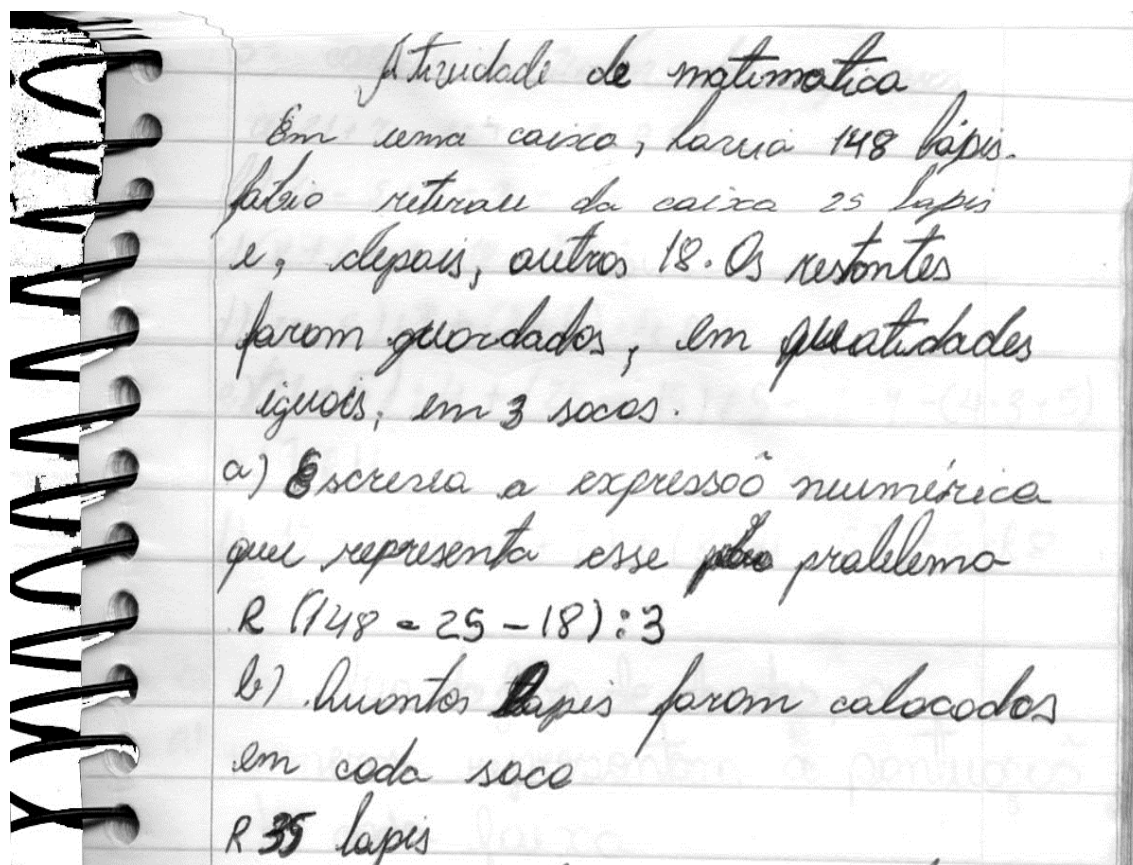 Atividade de matematica
Em uma caixa, havia 148 lápis.
fabio retirou da caixa 25 lapis
e, depois, outros 18. Os restantes
foram guardados, em quatidades
iguais, em 3 sacos.
a) Escreva a expressão numérica
que representa esse problema
R (148 - 25 - 18) : 3
b) Quantos lapis foram colocados
em cada saco
R 35 lapis